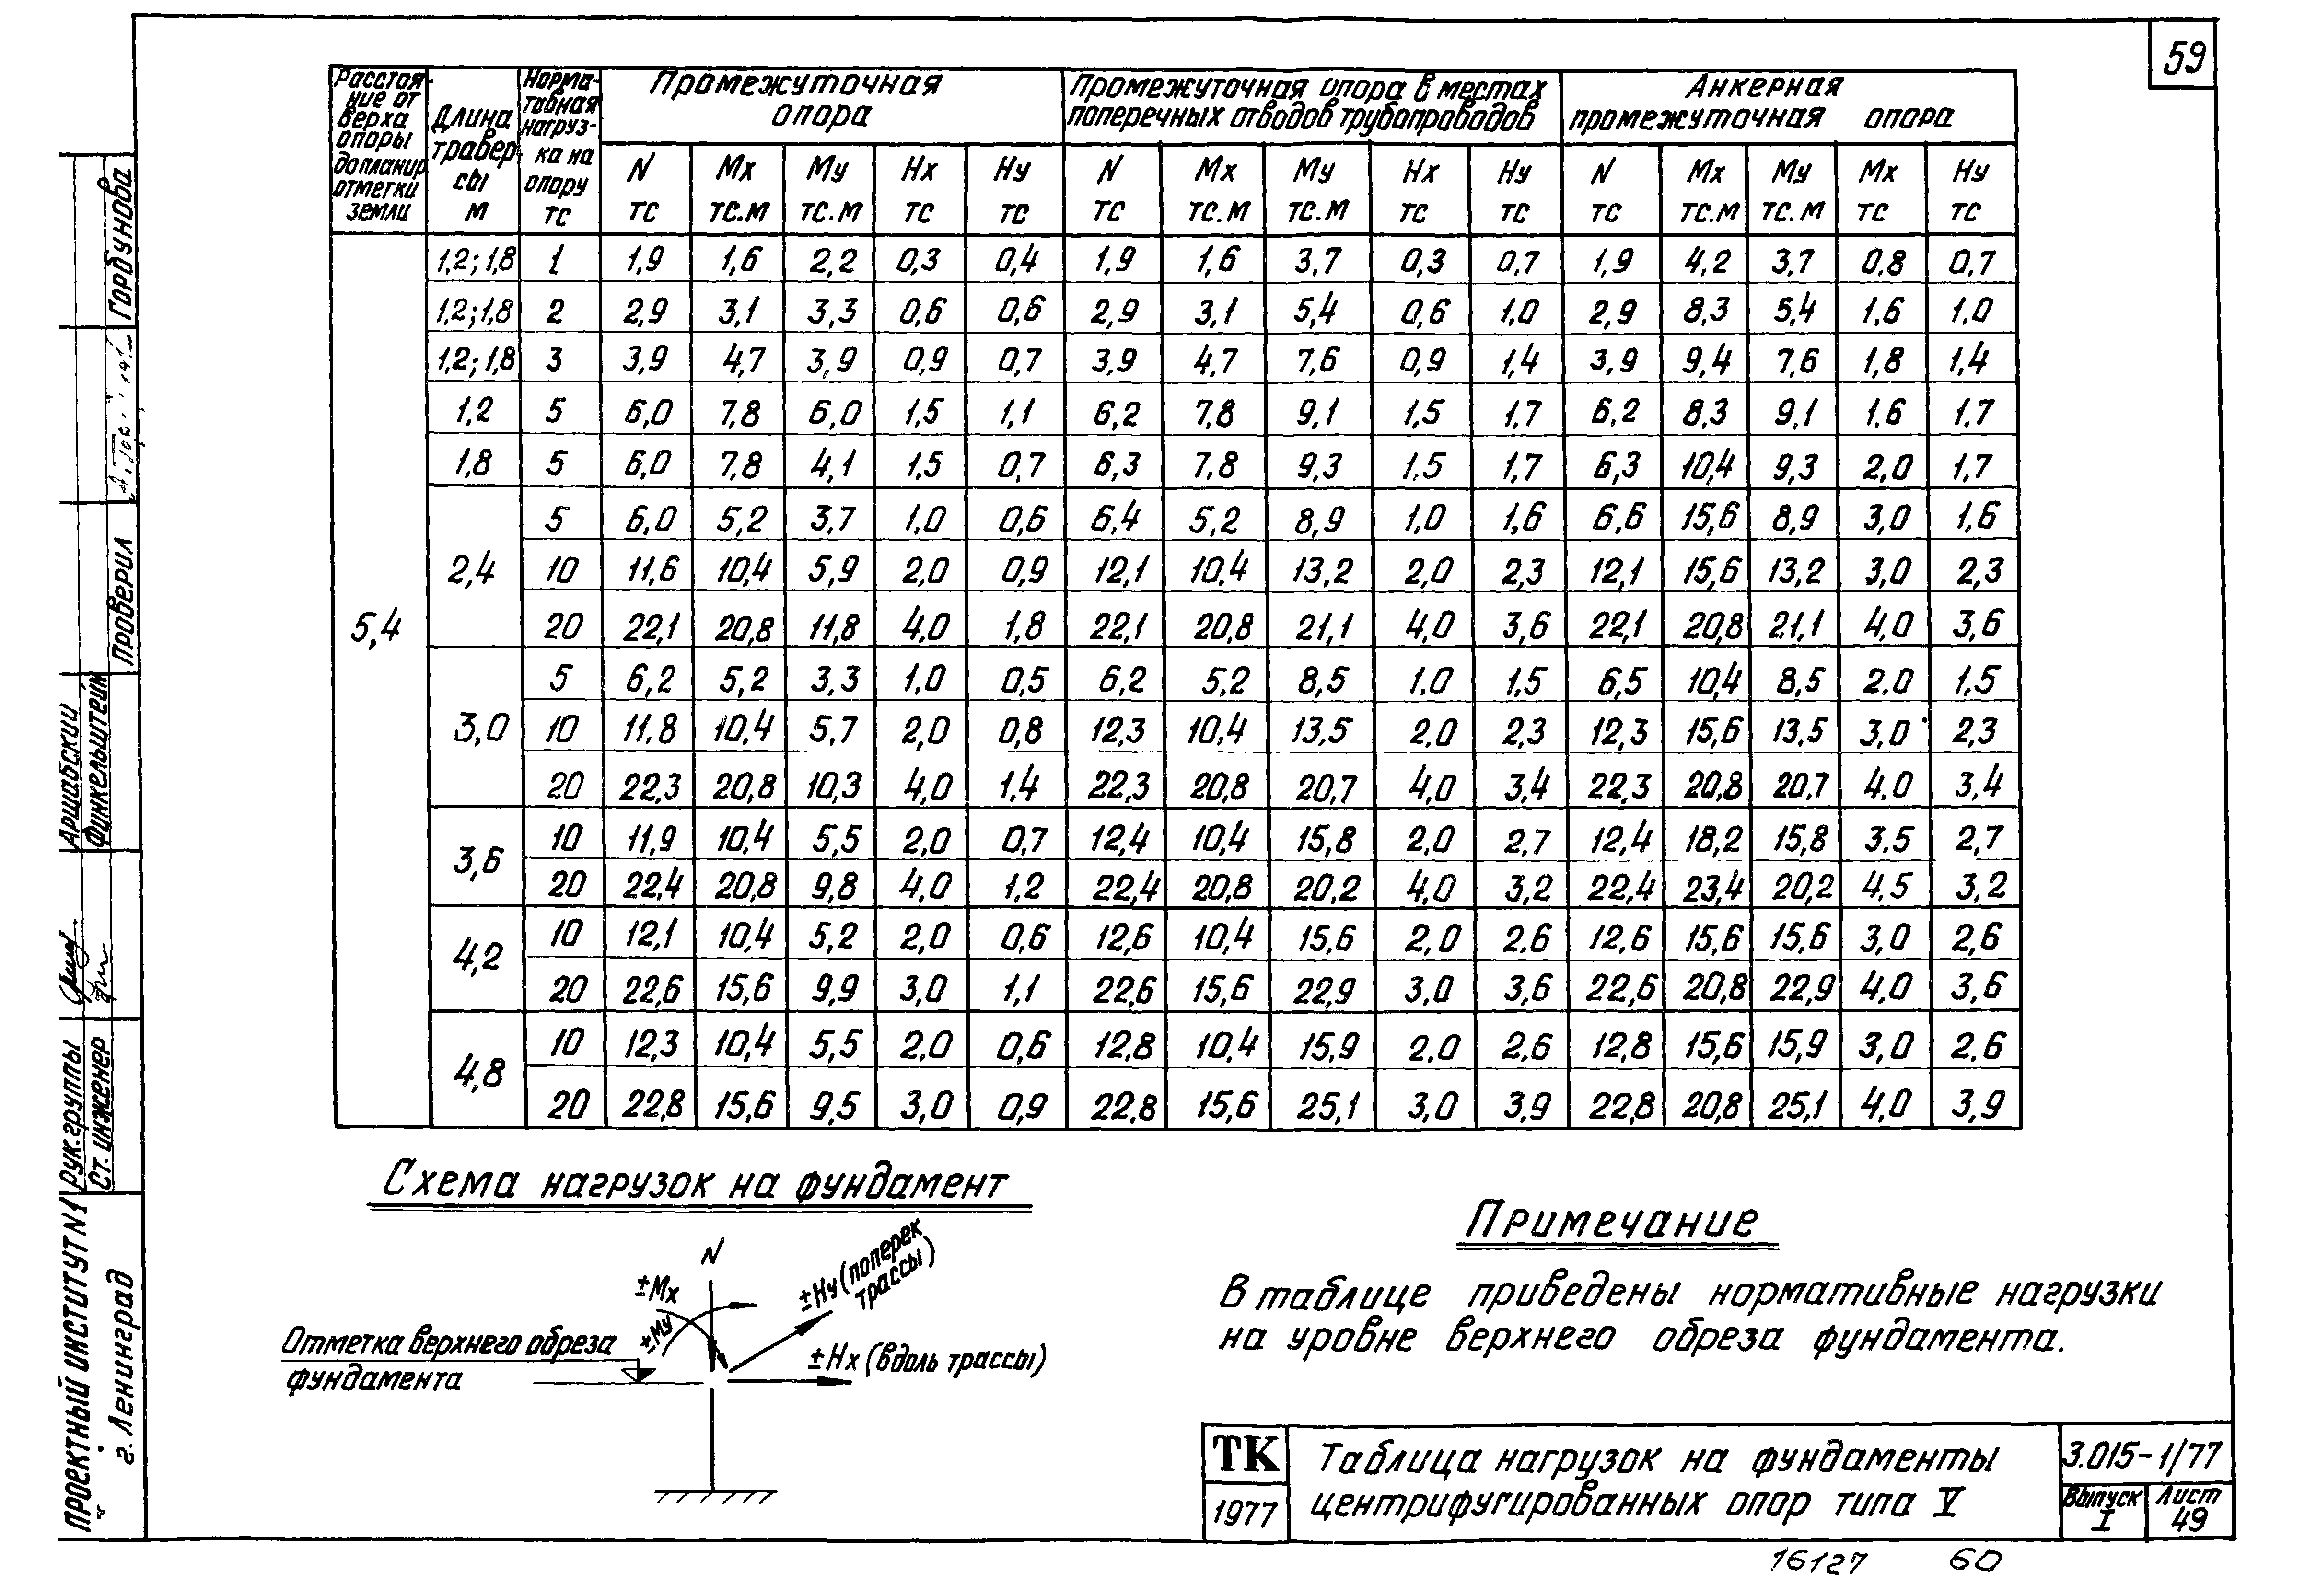 59
Расстоя-
ние от
верха
опоры
до планир
отметки
земли
Длина
травер-
сы
м
Норма-
тивная
нагруз-
ка на
опору
тс
Промежуточная
опора
Промежуточная опора в местах
поперечных отводов трубопроводов
Анкерная
промежуточная опора
N Mx My Hx Hy N Mx My Hx Hy N Mx My Mx Hy
тс тс.м тс.м тс тс тс тс.м тс.м тс тс тс тс.м тс.м тс тс
5,4
1,2; 1,8 1 1,9 1,6 2,2 0,3 0,4 1,9 1,6 3,7 0,3 0,7 1,9 4,2 3,7 0,8 0,7
1,2; 1,8 2 2,9 3,1 3,3 0,6 0,6 2,9 3,1 5,4 0,6 1,0 2,9 8,3 5,4 1,6 1,0
1,2; 1,8 3 3,9 4,7 3,9 0,9 0,7 3,9 4,7 7,6 0,9 1,4 3,9 9,4 7,6 1,8 1,4
1,2 5 6,0 7,8 6,0 1,5 1,1 6,2 7,8 9,1 1,5 1,7 6,2 8,3 9,1 1,6 1,7
1,8 5 6,0 7,8 4,1 1,5 0,7 6,3 7,8 9,3 1,5 1,7 6,3 10,4 9,3 2,0 1,7
2,4
5 6,0 5,2 3,7 1,0 0,6 6,4 5,2 8,9 1,0 1,6 6,6 15,6 8,9 3,0 1,6
10 11,6 10,4 5,9 2,0 0,9 12,1 10,4 13,2 2,0 2,3 12,1 15,6 13,2 3,0 2,3
20 22,1 20,8 11,8 4,0 1,8 22,1 20,8 21,1 4,0 3,6 22,1 20,8 21,1 4,0 3,6
3,0
5 6,2 5,2 3,3 1,0 0,5 6,2 5,2 8,5 1,0 1,5 6,5 10,4 8,5 2,0 1,5
10 11,8 10,4 5,7 2,0 0,8 12,3 10,4 13,5 2,0 2,3 12,3 15,6 13,5 3,0 2,3
20 22,3 20,8 10,3 4,0 1,4 22,3 20,8 20,7 4,0 3,4 22,3 20,8 20,7 4,0 3,4
3,6
10 11,9 10,4 5,5 2,0 0,7 12,4 10,4 15,8 2,0 2,7 12,4 18,2 15,8 3,5 2,7
20 22,4 20,8 9,8 4,0 1,2 22,4 20,8 20,2 4,0 3,2 22,4 23,4 20,2 4,5 3,2
4,2
10 12,1 10,4 5,2 2,0 0,6 12,6 10,4 15,6 2,0 2,6 12,6 15,6 15,6 3,0 2,6
20 22,6 15,6 9,9 3,0 1,1 22,6 15,6 22,9 3,0 3,6 22,6 20,8 22,9 4,0 3,6
4,8
10 12,3 10,4 5,5 2,0 0,6 12,8 10,4 15,9 2,0 2,6 12,8 15,6 15,9 3,0 2,6
20 22,8 15,6 9,5 3,0 0,9 22,8 15,6 25,1 3,0 3,9 22,8 20,8 25,1 4,0 3,9
Схема нагрузок на фундамент
N
±Mx
±My
±Hy (поперек
трассы)
±Hx (вдоль трассы)
Отметка верхнего обреза
фундамента
Примечание
В таблице приведены нормативные нагрузки
на уровне верхнего обреза фундамента.
ТК
1977
Таблица нагрузок на фундаменты
центрифугированных опор типа V
3.015-1/77
Выпуск
I
Лист
49
16127 60
Проектный институт N1
г. Ленинград
Рук. группы
Ст. инженер
Аршавский
Финкельштейн
Проверил
Горбунова